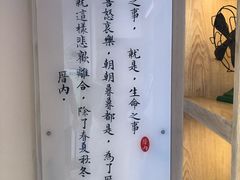 之事，就是，生命之事
喜怒哀樂，朝朝暮暮都是，為了曆
就這樣悲歡離合，除了春夏秋冬
曆內，